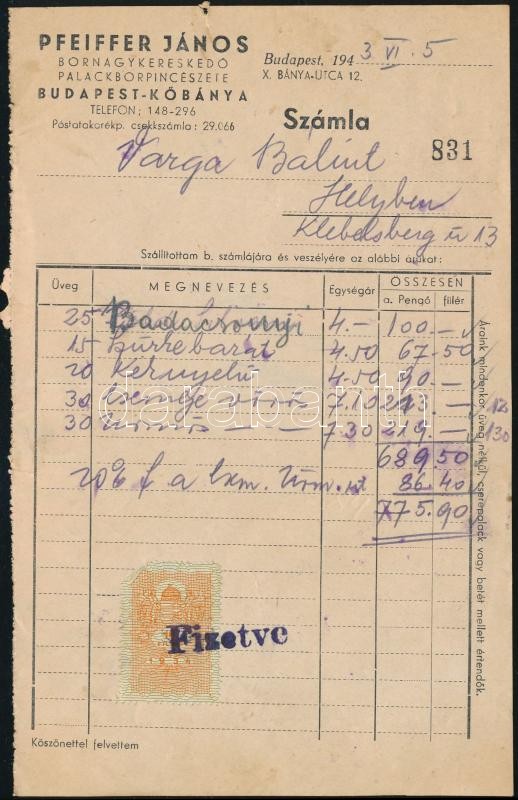 PFEIFFER JÁNOS
BORNAGYKERESKEDŐ
PALACKBORPINCÉSZETE
BUDAPEST-KŐBÁNYA
TELEFON: 148-296
Póstatakarékp. csekkszámla: 29.066
Budapest, 194 3 VI. 5
X. BÁNYA-UTCA 12.
Számla
831
Varga Bálint
Helyben
Klebelsberg u 13
Szállítottam b. számlájára és veszélyére az alábbi árukat:
Üveg MEGNEVEZÉS Egységár ÖSSZESEN
a. Pengő fillér
25 Badacsonyi 4.— 100.—
15 Szürkebarát 4.50 67.50
20 Kéknyelű 4.50 90.—
30 csemege vörös 7.10 213.—
30 ürmös — — 7 30 219.—
689.50
20% f a 86.40
775.90
Fizetve
Köszönettel felvettem
Áraink mindenkor üveg nélkül, cserepalack vagy betét mellett értendők.
darabanth